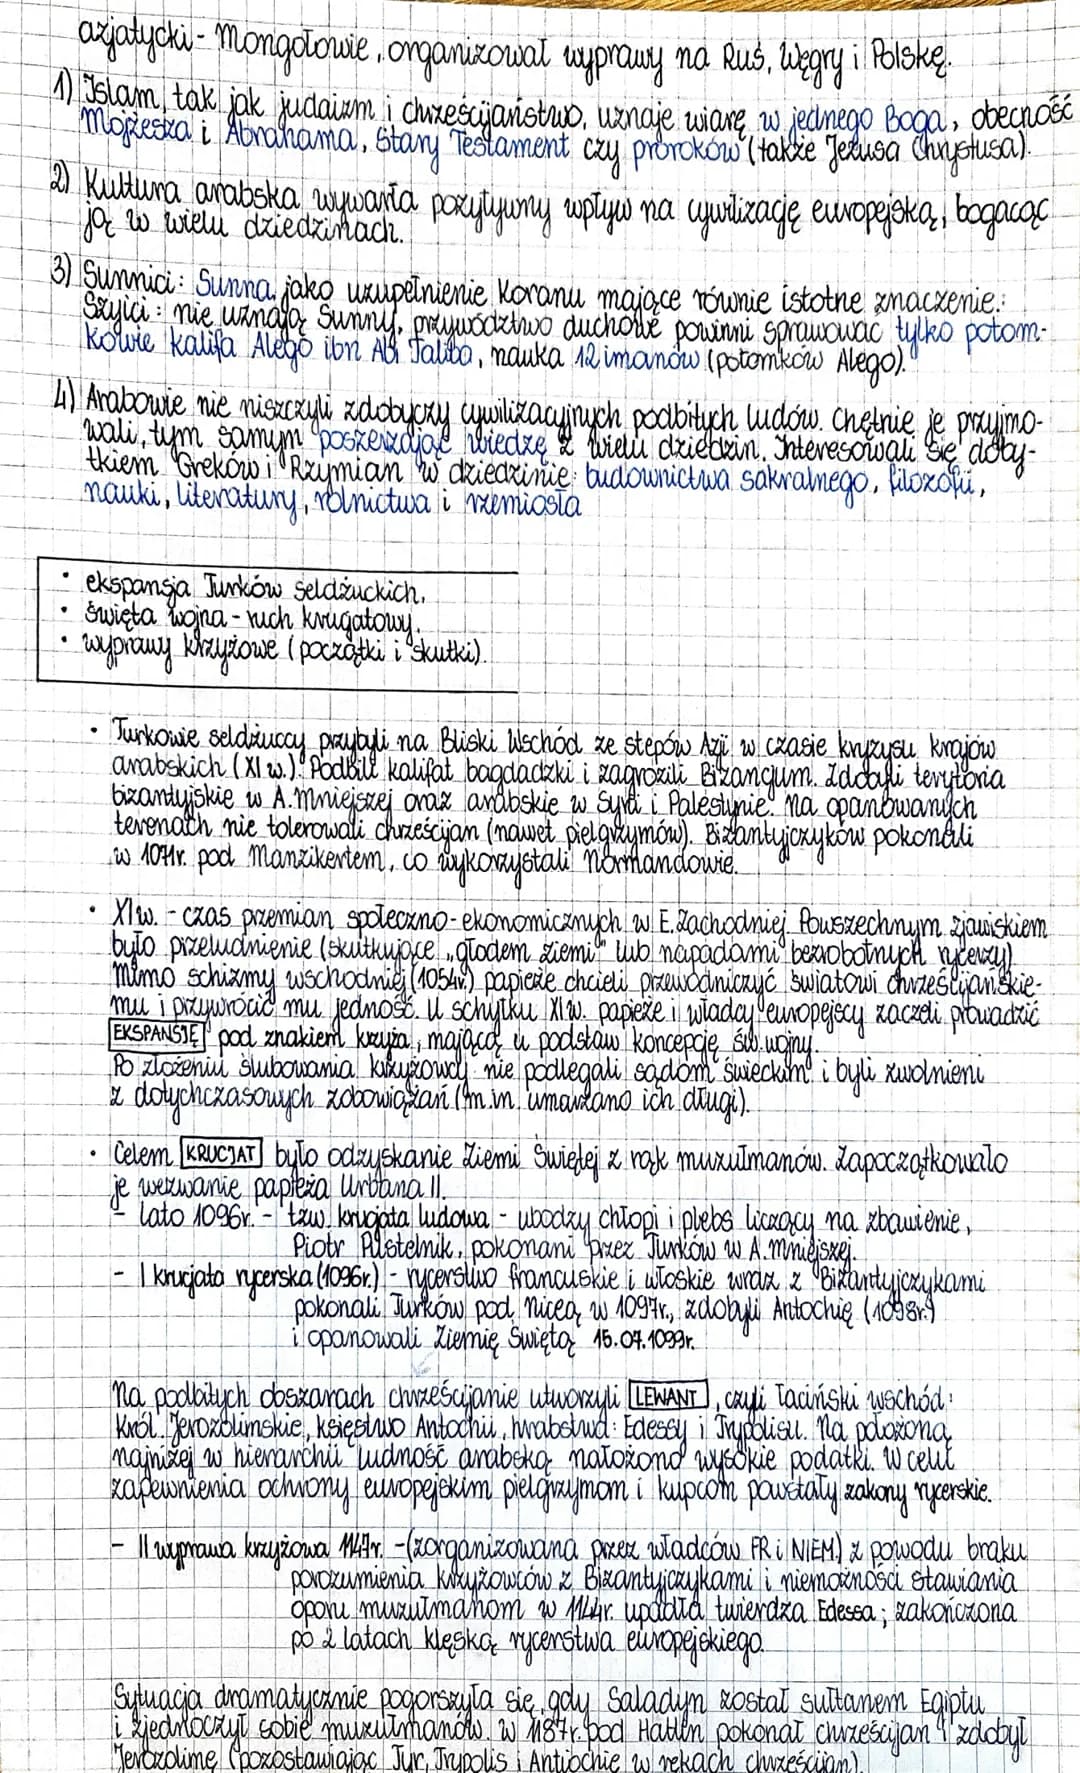 azjatycki - Mongołowie, organizował wyprawy na Ruś, Węgry i Polskę.
1) Islam, tak jak judaizm i chrześcijaństwo, uznaje wiarę w jednego Boga, obecność
Mojżesza i Abrahama, Stary Testament czy proroków (także Jezusa Chrystusa).
2) Kultura arabska wywarła pozytywny wpływ na cywilizację europejską, bogacąc
ją w wielu dziedzinach.
3) Sunnici: Sunna jako uzupełnienie Koranu mające równie istotne znaczenie.:
Szyici: nie uznają Sunny, przywództwo duchowe powinni sprawować tylko potom-
kowie kalifa Alego ibn Abi Taliba, nauka 12 imanów (potomków Alego).
4) Arabowie nie niszczyli zdobyczy cywilizacyjnych podbitych ludów. Chętnie je przyjmo-
wali, tym samym poszerzając wiedzę z wielu dziedzin. Interesowali się doby-
tkiem Greków i Rzymian w dziedzinie: budownictwa sakralnego, filozofii,
nauki, literatury, rolnictwa i rzemiosła
• ekspansja Turków Seldżuckich,
• święta wojna - ruch krugatowy,
• wyprawy krzyżowe (początki i skutki).
• Turkowie seldżuccy przybyli na Bliski Wschód ze stepów Azji w czasie kryzysu krajów
arabskich (XI w.). Podbili kalifat bagdadzki i zagrozili Bizancjum. Zdobyli terytoria
bizantyjskie w A.Mniejszej oraz arabskie w Syrii i Palestynie. Na opanowanych
terenach nie tolerowali chrześcijan (nawet pielgrzymów). Bizantyjczyków pokonali
w 1071r. pod Manzikertem, co wykorzystali Normandowie.
• XI w. - czas przemian społeczno-ekonomicznych w E.Zachodniej. Powszechnym zjawiskiem
było przeludnienie (skutkujące „głodem ziemi" lub napadami bezrobotnych rycerzy)
Mimo schizmy wschodniej (1054r.) papieże chcieli przewodniczyć światowi chrześcijańskie-
mu i przywrócić mu jedność. U schyłku XI w. papieże i władcy europejscy zaczęli prowadzić
EKSPANSJĘ pod znakiem krzyża, mającą u podstaw koncepcję św. wojny.
Po złożeniu ślubowania krzyżowcy nie podlegali sądom świeckim i byli zwolnieni
z dotychczasowych zobowiązań (m.in. umarzano ich długi).
• Celem KRUCJAT było odzyskanie Ziemi Świętej z rąk muzułmanów. Zapoczątkowało
je wezwanie papieża Urbana II.
- lato 1096r. - tzw. krucjata ludowa - ubodzy chłopi i plebs liczący na zbawienie,
Piotr Pustelnik, pokonani przez Turków w A.Mniejszej.
- I krucjata rycerska (1096r.) - rycerstwo francuskie i włoskie wraz z Bizantyjczykami
pokonali Turków pod Niceą w 1097r., zdobyli Antochię (1098r.)
i opanowali Ziemię Świętą 15.07.1099r.
Na podbitych obszarach chrześcijanie utworzyli LEWANT, czyli łaciński wschód:
Król. Jerozolimskie, księstwo Antochii, hrabstwa: Edessy i Trypolisu. Na położoną
najniżej w hierarchii ludność arabską nałożono wysokie podatki. W celu
zapewnienia ochrony europejskim pielgrzymom i kupcom powstały zakony rycerskie.
- II wyprawa krzyżowa 1147r. - (zorganizowana przez władców FR i NIEM.) z powodu braku
porozumienia krzyżowców z Bizantyjczykami i niemożności stawiania
oporu muzułmanom w 1144r. upadła twierdza Edessa; zakończona
po 2 latach klęską rycerstwa europejskiego.
Sytuacja dramatycznie pogorszyła się, gdy Saladyn został sułtanem Egiptu
i zjednoczył sobie muzułmanów. W 1187r. pod Hattin pokonał chrześcijan i zdobył
Jerozolimę (pozostawiając Tyr, Trypolis i Antiochię w rękach chrześcijan).